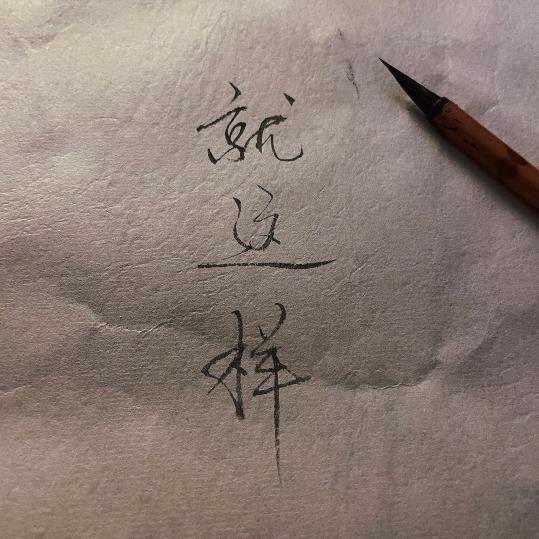 就这样